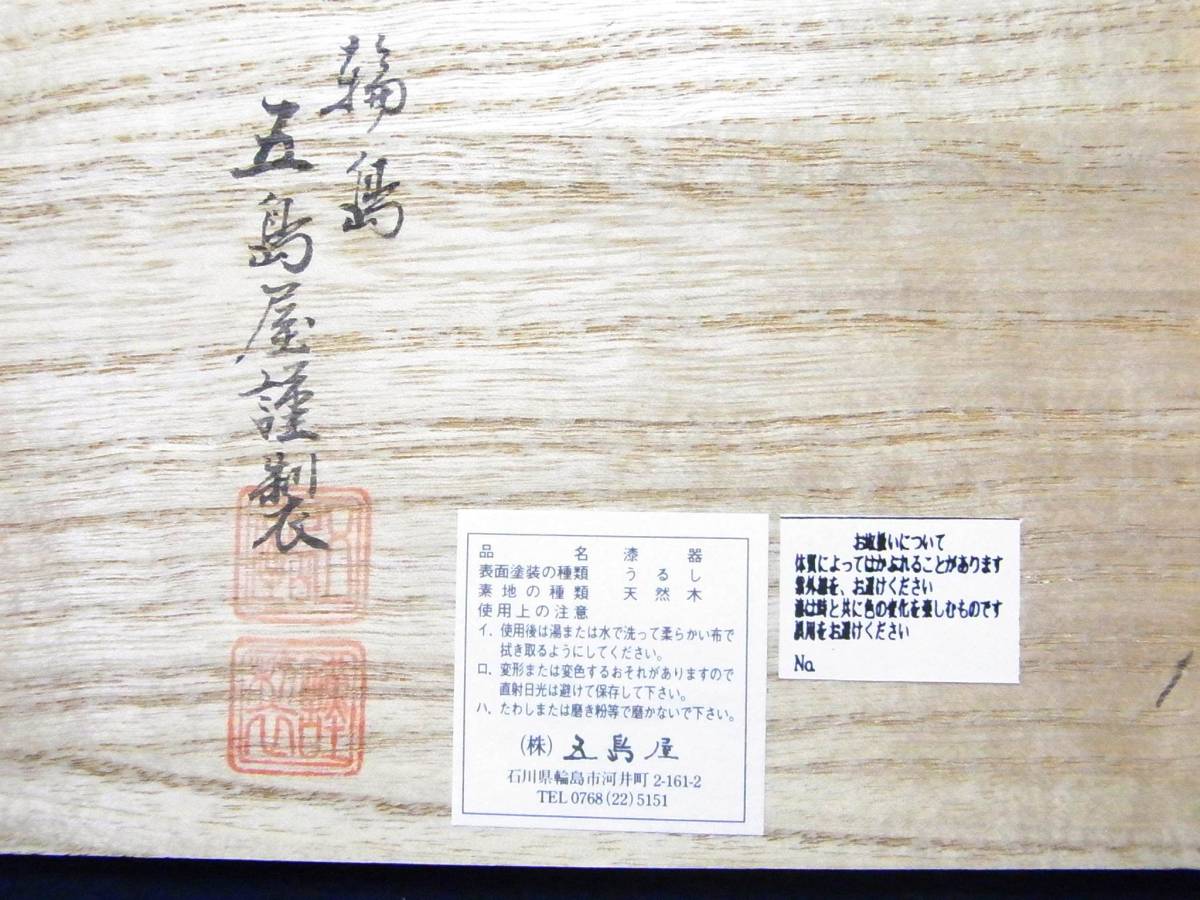 輪島
五島屋謹製
品名 漆器
表面塗装の種類 うるし
素地の種類 天然木
使用上の注意
イ．使用後は湯または水で洗って柔らかい布で
拭き取るようにしてください。
ロ．変形または変色するおそれがありますので
直射日光は避けて保存して下さい。
ハ．たわしまたは磨き粉等で磨かないで下さい。
(株) 五島屋
石川県輪島市河井町 2-161-2
TEL 0768 (22) 5151
お取扱いについて
体質によってはかぶれることがあります
紫外線を、お避けください
漆は時と共に色の変化を楽しむものです
誤用をお避けください
No.